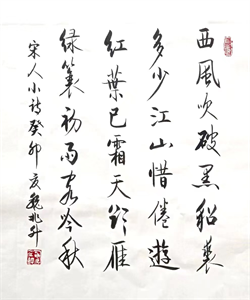 西風吹破黑貂裘
多少江山惜倦遊
紅葉已霜天欲雁
綠簑初雨客吟秋
宋人小詩癸卯夏魏兆升